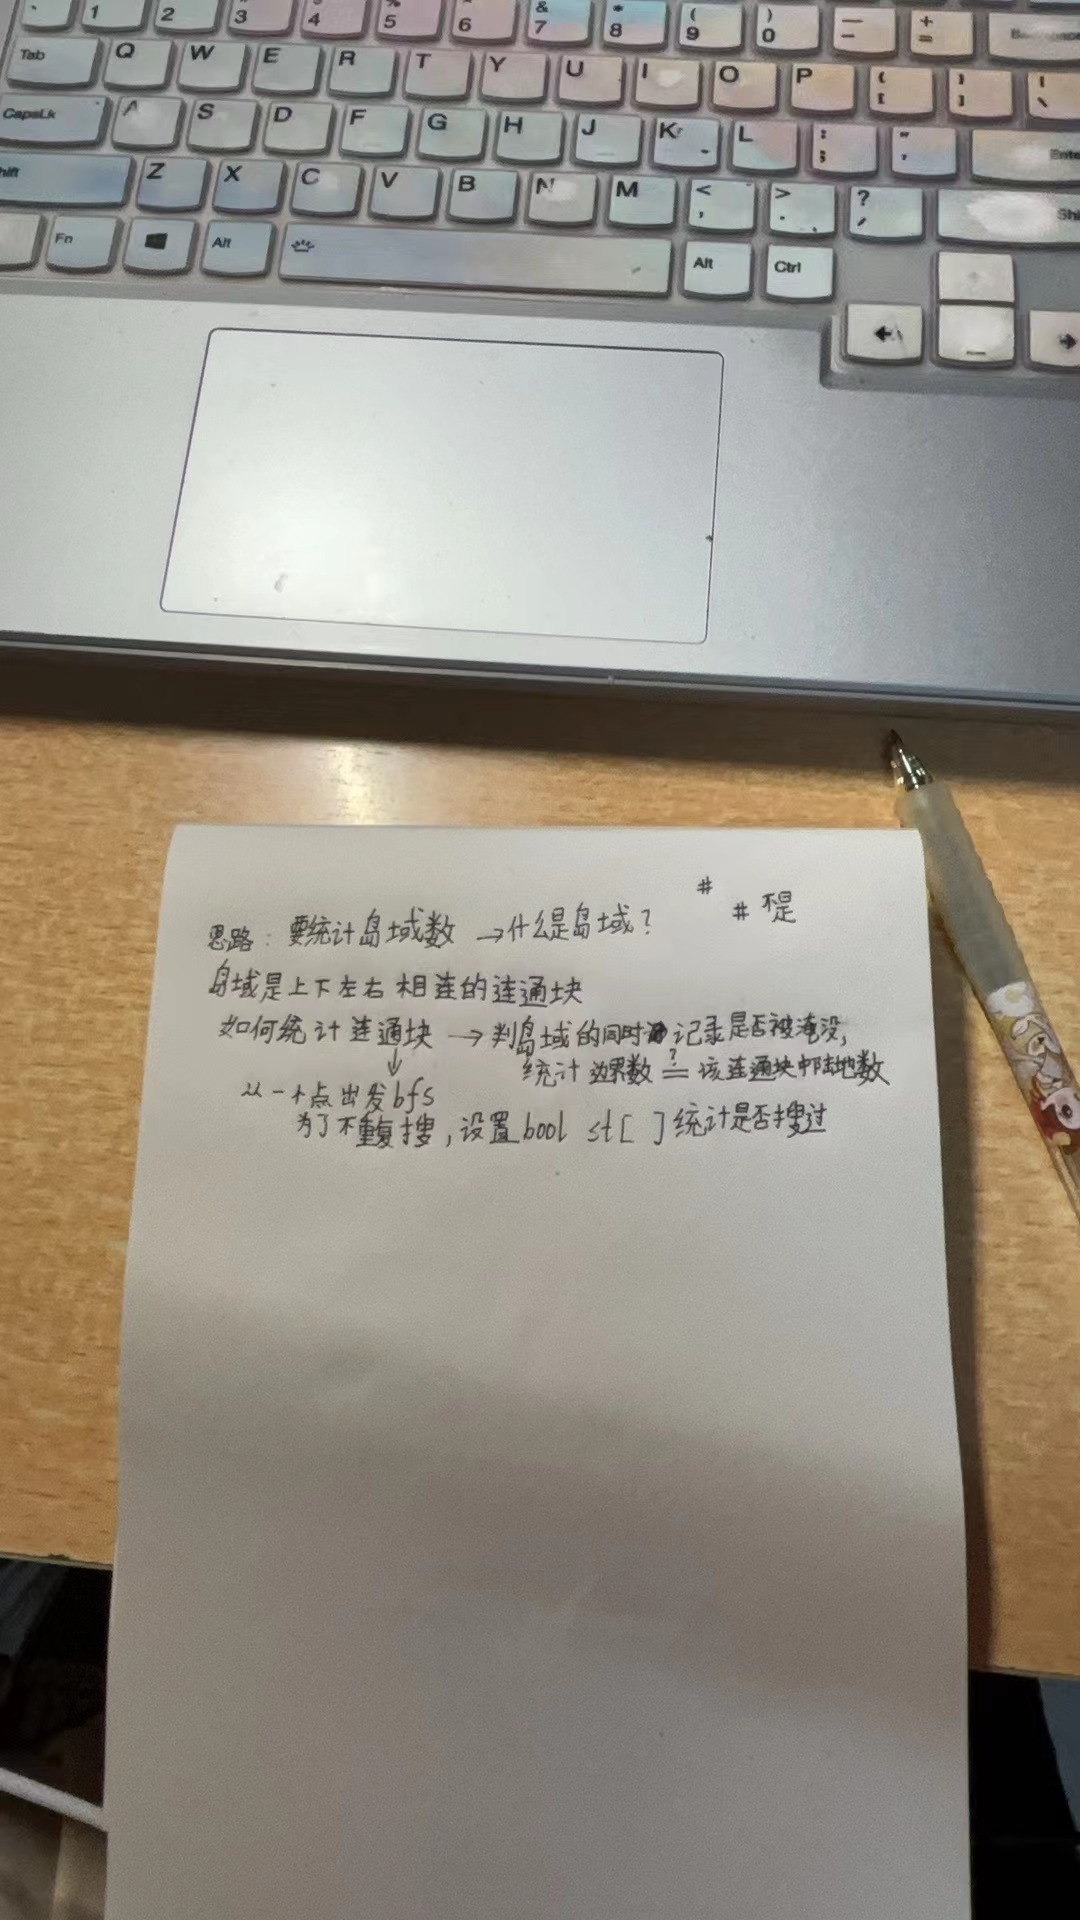 1 2 3 4 5 6 & 7 * 8 ( 9 ) 0 — - + =
Tab Q W E R T Y U I O P { [ } ] | \
CapsLk A S D F G H J K L : ; " ' Enter
Shift Z X C V B N M < , > . ? /
Fn Alt Alt Ctrl
#
# 不是
思路：要统计岛域数 →什么是岛域？
岛域是上下左右相连的连通块
如何统计连通块 → 判岛域的同时记录是否被淹没,
↓ 统计边界数 ?= 该连通块中陆地数
从一个点出发bfs
为了不重复搜,设置bool st[ ]统计是否搜过